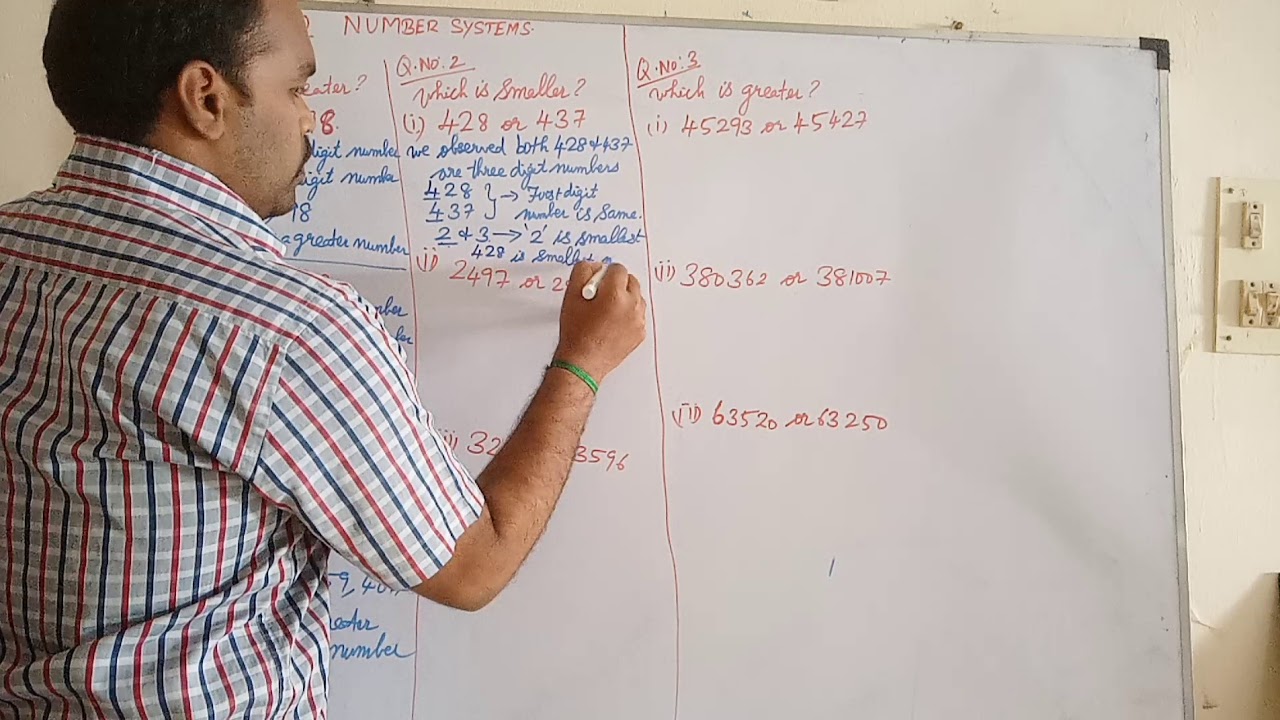 NUMBER SYSTEMS.
eater?
8.
digit number
digit number
18
a greater number
greater
number
Q.No:2
which is smaller?
(i) 428 or 437
we observed both 428 & 437
are three digit numbers
428 } → First digit
437 number is same.
2 & 3 → '2' is smallest
428 is smallest
ii) 2497 or 2
iii) 32 3596
Q.No:3
which is greater?
(i) 45293 or 45427
(ii) 380362 or 381007
(iii) 63520 or 63250